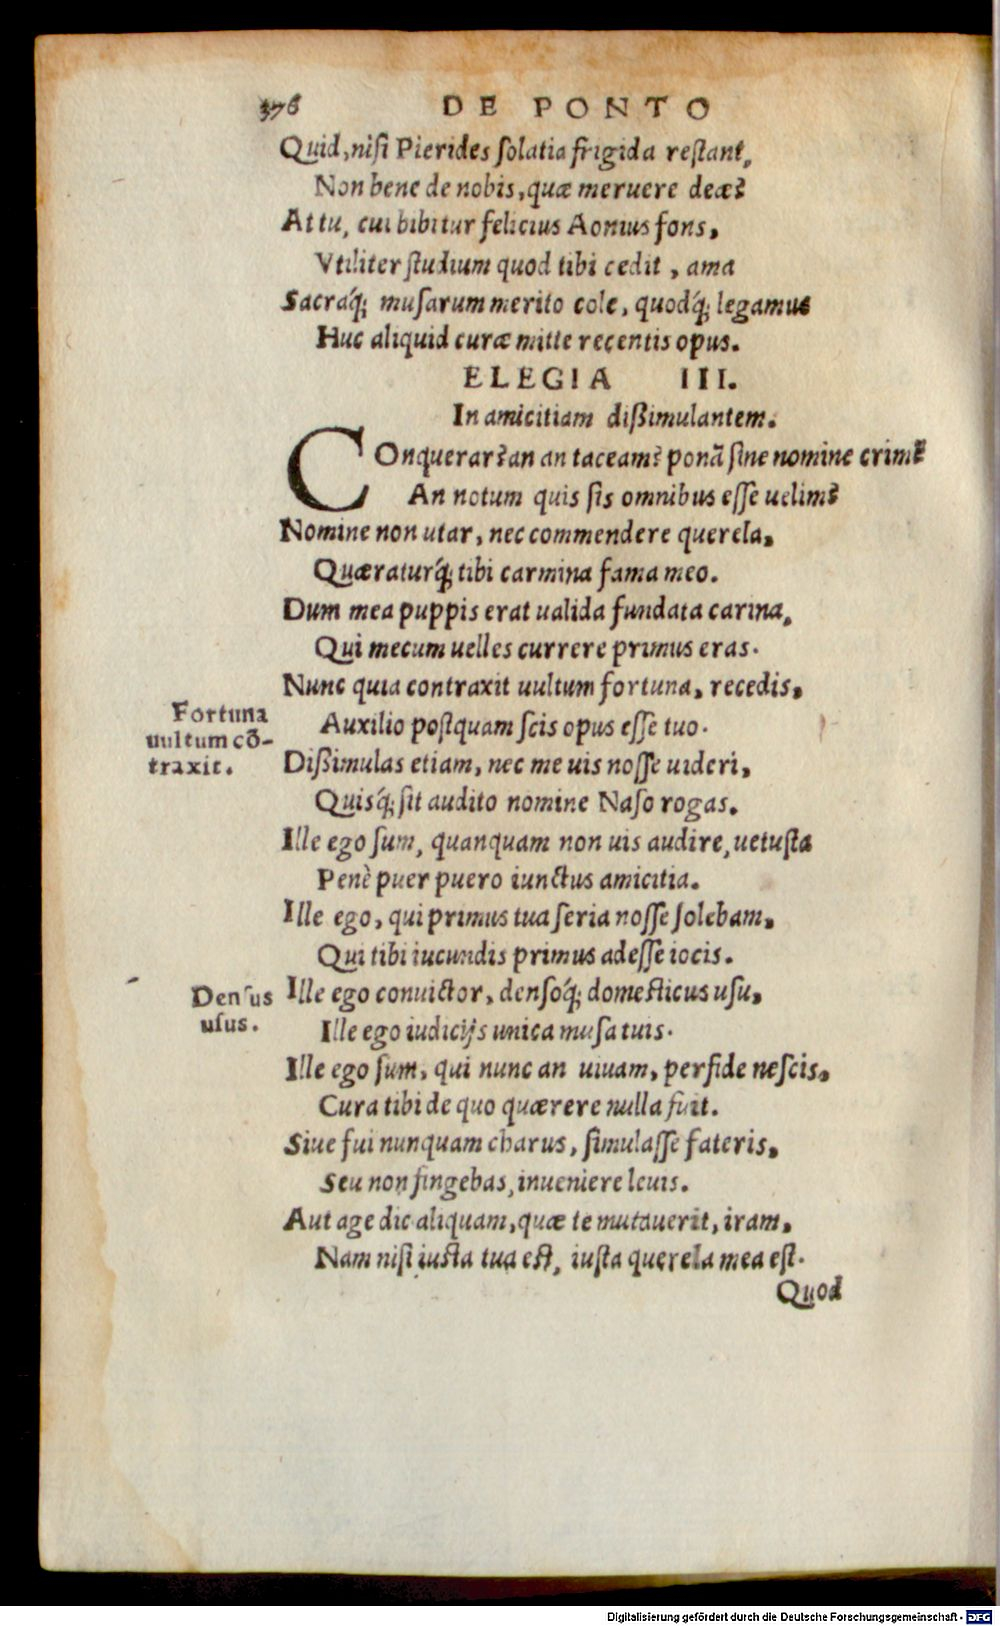 376 DE PONTO
Quid, nisi Pierides ſolatia frigida reſtant,
Non bene de nobis, quæ meruere deæ?
At tu, cui bibitur felicius Aonius fons,
Vtiliter ſtudium quod tibi cedit, ama
Sacraq́; muſarum merito cole, quodq́; legamus
Huc aliquid curæ mitte recentis opus.
ELEGIA III.
In amicitiam dißimulantem.
COnquerar? an an taceam? ponā ſine nomine crimē
An notum quis ſis omnibus eſſe uelim?
Nomine non utar, nec commendere querela,
Quæraturq́; tibi carmina fama meo.
Dum mea puppis erat ualida fundata carina,
Qui mecum uelles currere primus eras.
Nunc quia contraxit uultum fortuna, recedis,
Fortuna
uultum cō-
traxit.
Auxilio poſtquam ſcis opus eſſe tuo.
Dißimulas etiam, nec me uis noſſe uideri,
Quisq́; ſit audito nomine Naſo rogas.
Ille ego ſum, quanquam non uis audire, uetuſta
Penè puer puero iunctus amicitia.
Ille ego, qui primus tua ſeria noſſe ſolebam,
Qui tibi iucundis primus adeſſe iocis.
Denſus
uſus.
Ille ego conuictor, denſoq́; domeſticus uſu,
Ille ego iudicijs unica muſa tuis.
Ille ego ſum, qui nunc an uiuam, perfide neſcis,
Cura tibi de quo quærere nulla fuit.
Siue fui nunquam charus, ſimulaſſe fateris,
Seu non fingebas, inueniere leuis.
Aut age dic aliquam, quæ te mutauerit, iram,
Nam niſi iuſta tua eſt, iuſta querela mea eſt.
Quod
Digitalisierung gefördert durch die Deutsche Forschungsgemeinschaft - DFG